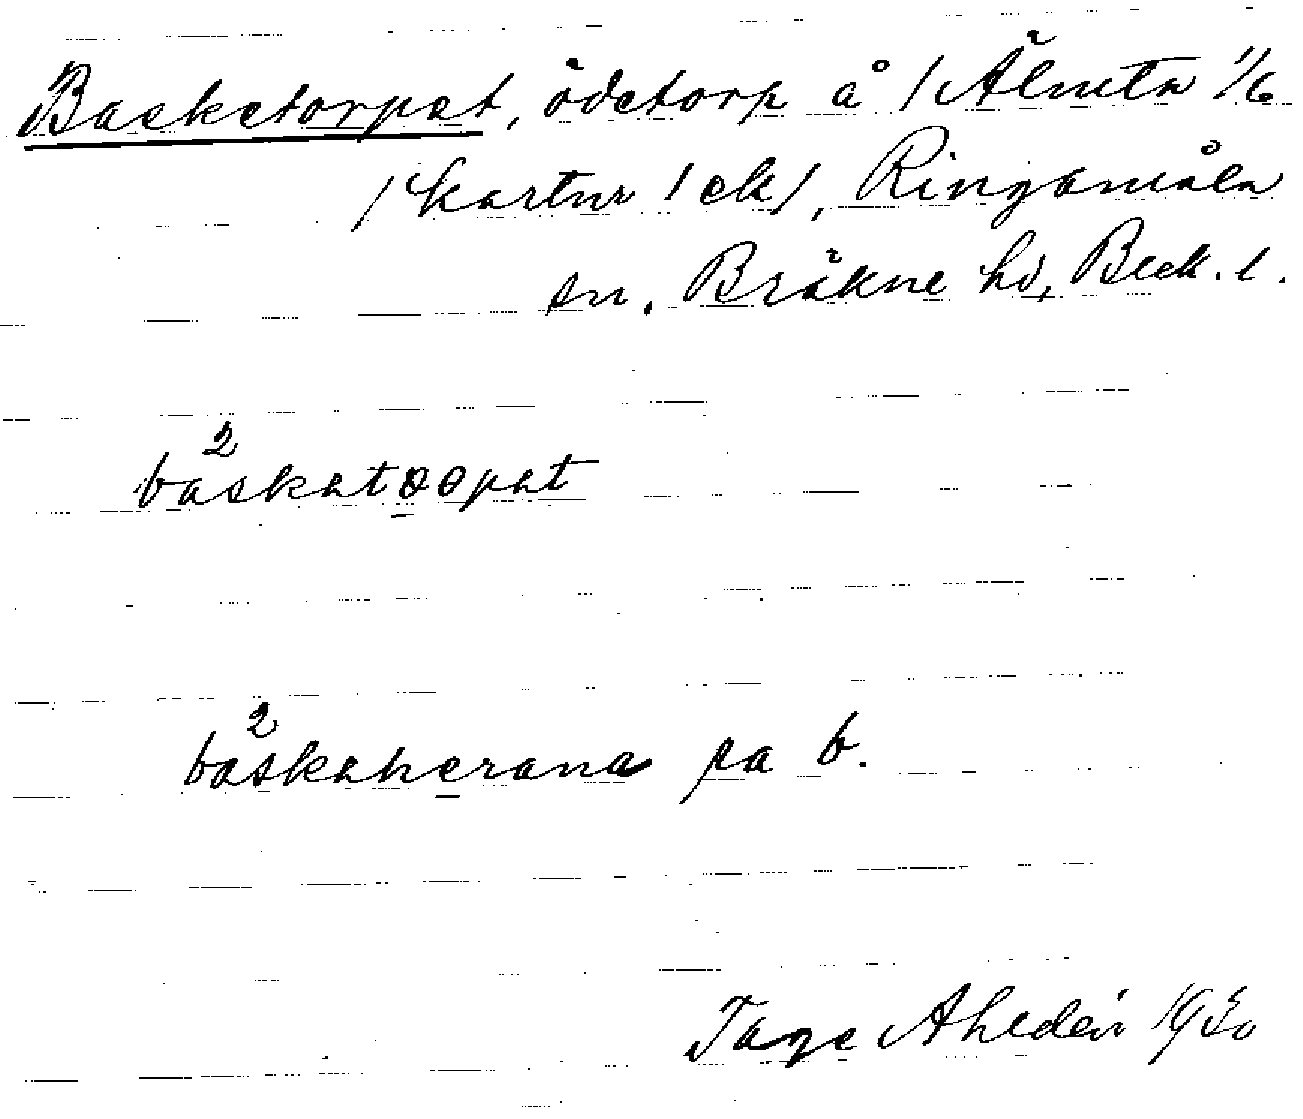 Basketorpet, ödetorp å /Älmta 1/6
/kartur 1 ek/, Ringamåla
sn. Bräkne hd, Blek. l.
baskatoopat
baskaherana pa b.
Tage Ahldén 1930